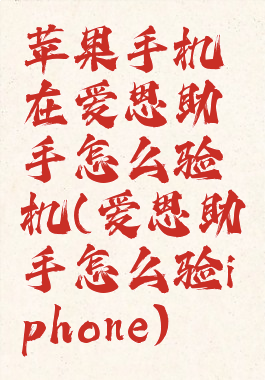 苹果手机
在爱思助
手怎么验
机(爱思助
手怎么验i
phone)